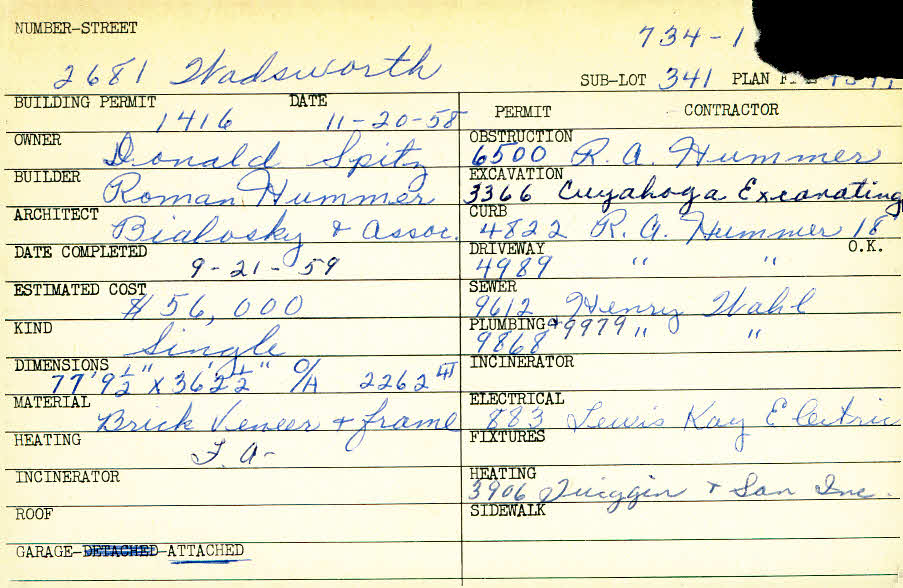 NUMBER-STREET
734-1
2681 Wadsworth
SUB-LOT 341 PLAN
BUILDING PERMIT DATE
1416 11-20-58
PERMIT CONTRACTOR
OWNER
Donald Spitz
OBSTRUCTION
6500 R. A. Hummer
BUILDER
Roman Hummer
EXCAVATION
3366 Cuyahoga Excavating
ARCHITECT
Bialosky & Assoc.
CURB
4822 R. A. Hummer 18
DATE COMPLETED
9-21-59
DRIVEWAY O.K.
4989 " "
ESTIMATED COST
$56,000
SEWER
9612 Henry Wahl
KIND
Single
PLUMBING & 9979 " "
9868
DIMENSIONS
77'9½" X 36'2½" O/A 2262
INCINERATOR
MATERIAL
Brick Veneer & frame
ELECTRICAL
883 Lewis Kay Electric
HEATING
F. A-
FIXTURES
INCINERATOR
HEATING
3906 & Son Inc.
ROOF
SIDEWALK
GARAGE-DETACHED-ATTACHED